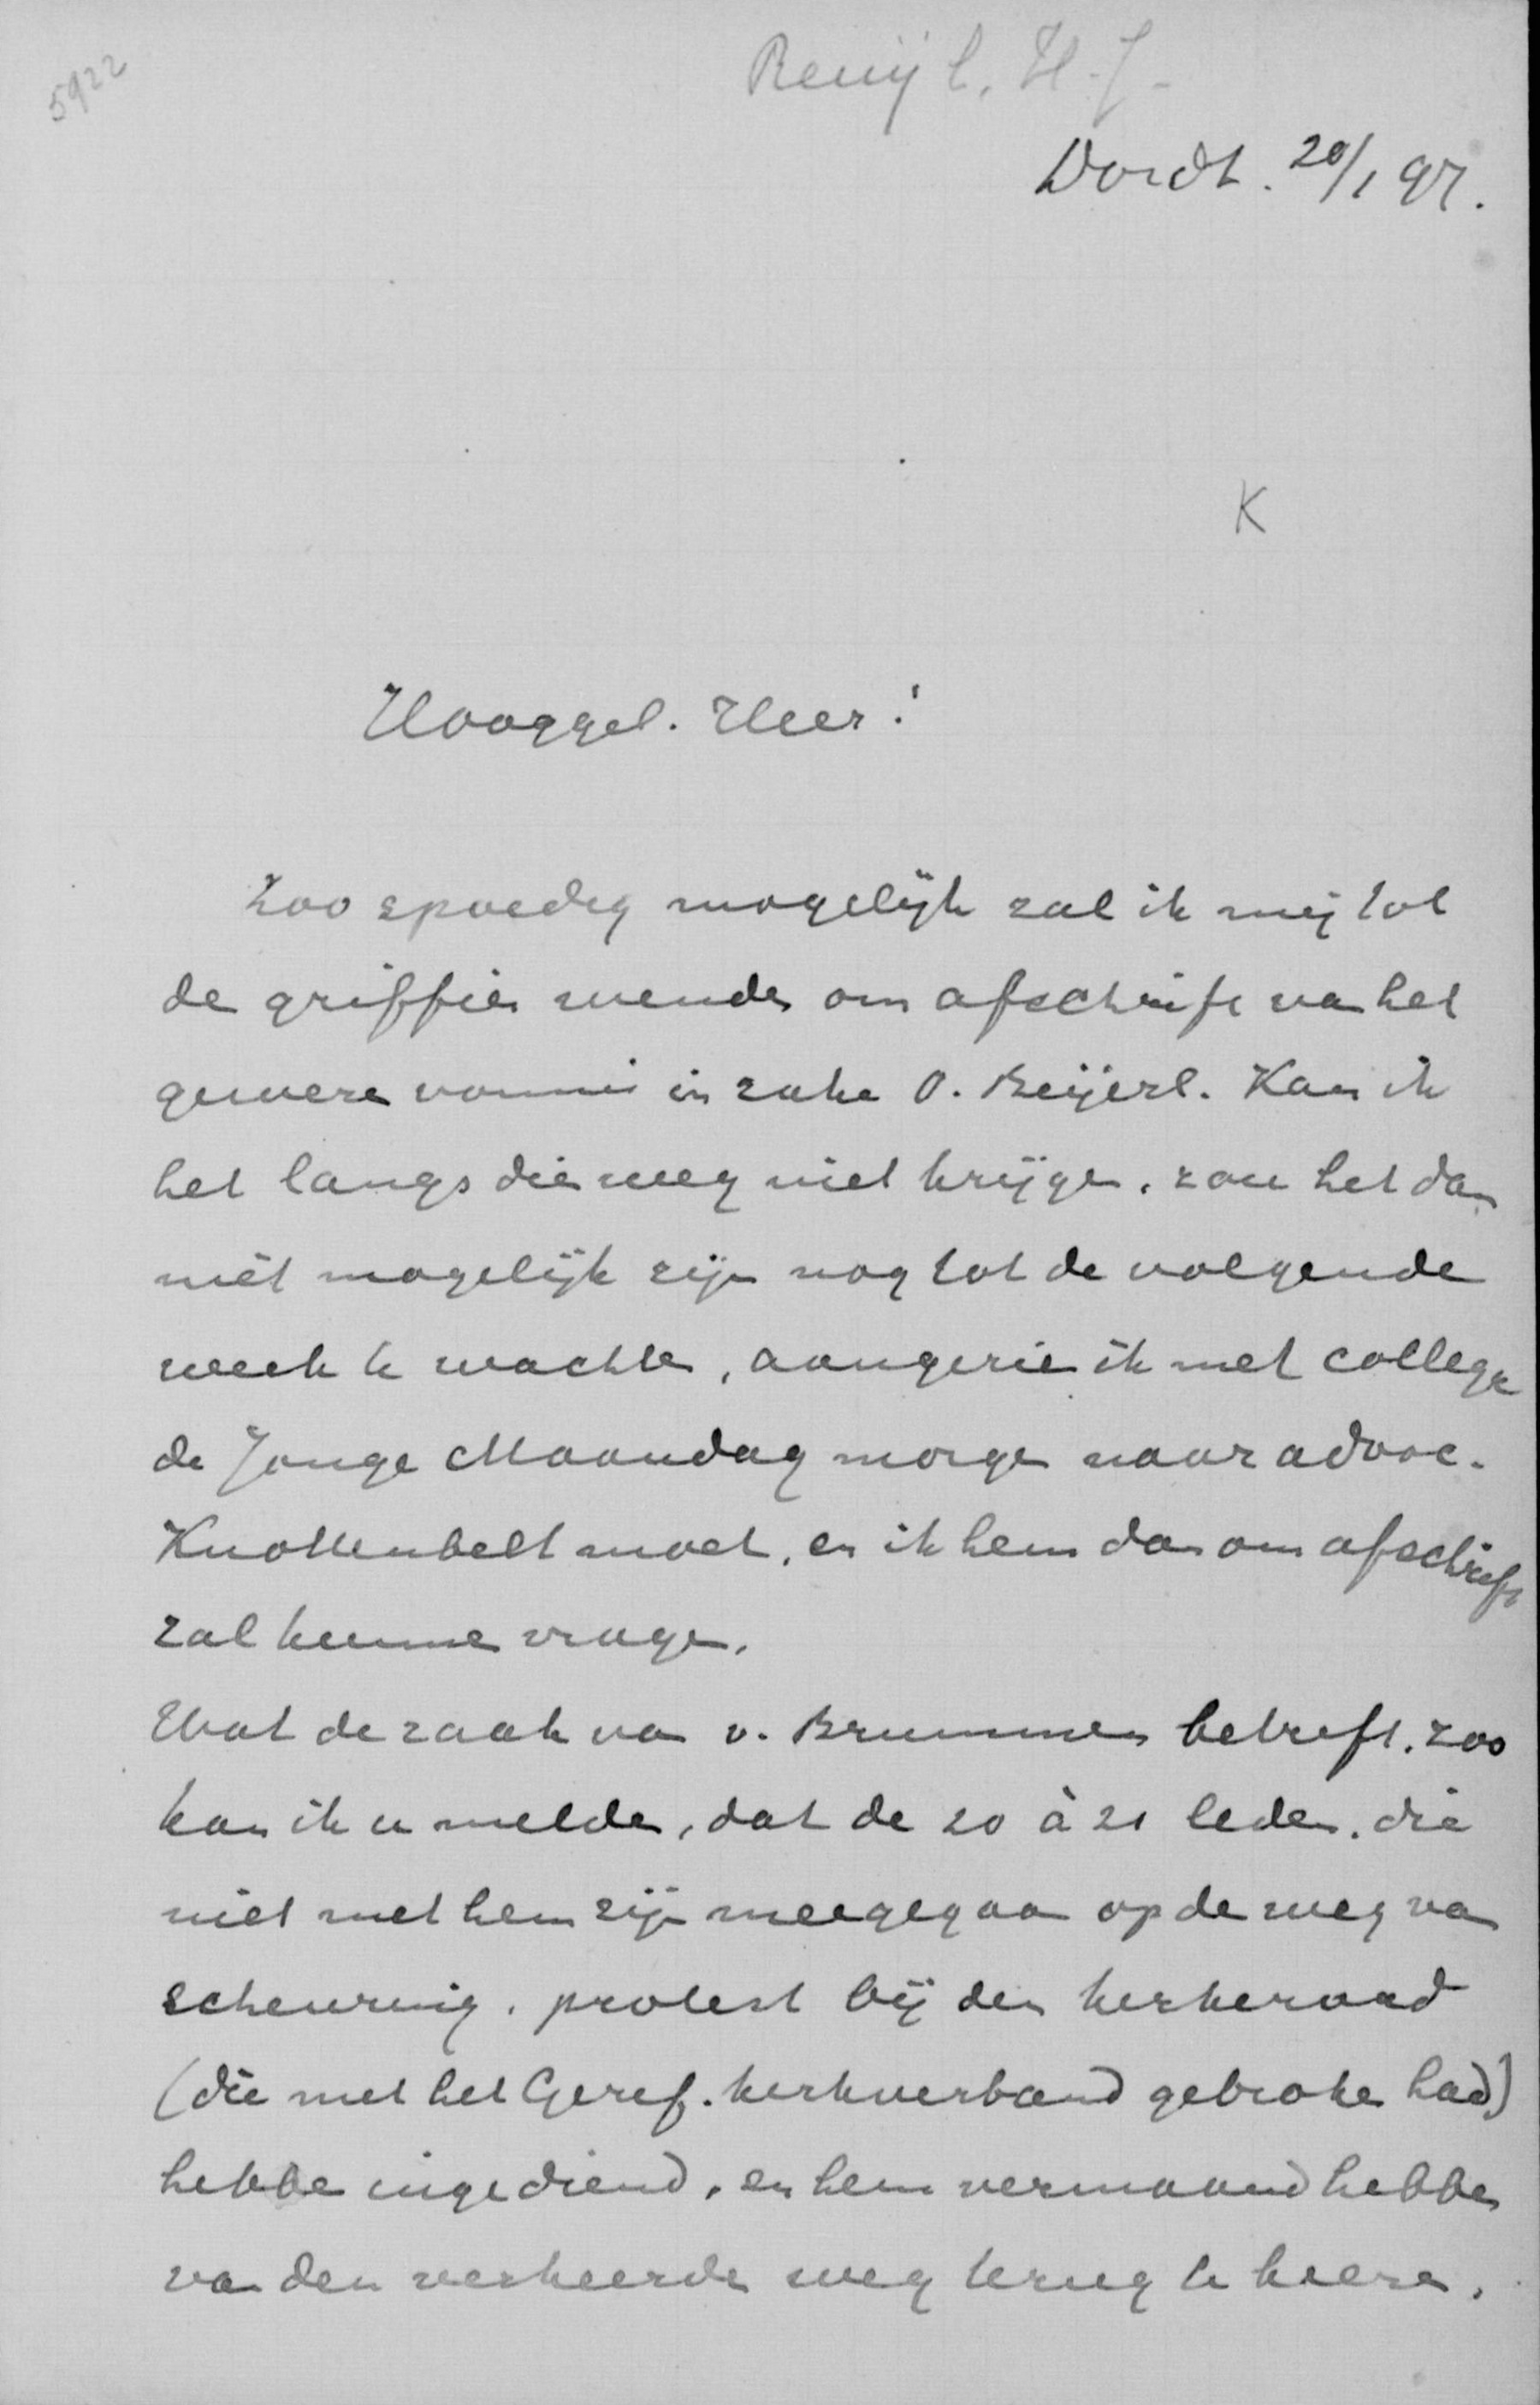 5922
Remij l. H. J.
Dordt. 20/1 97.
K
Hooggel. Heer!
Zoo spoedig mogelijk zal ik mij tot
de griffier wenden om afschrift van het
geweze vonnis in zake O. Beijerl. Kan ik
het langs die weg niet krijgen, zou het dan
niet mogelijk zijn nog tot de volgende
week te wachten, aangezien ik met collega
de Jonge Maandag morgen naar advoc.
Knottenbelt moet, en ik hem dan om afschrift
zal kunnen vragen.
Wat de zaak van v. Brummen betreft, zoo
kan ik u melden, dat de 20 à 21 leden, die
niet met hem zijn meegegaan op de weg van
scheuring, protest bij den kerkeraad
(die met het Geref. kerkverband gebroken had)
hebben ingediend, en hem vermaand hebben
van den verkeerden weg terug te keeren.